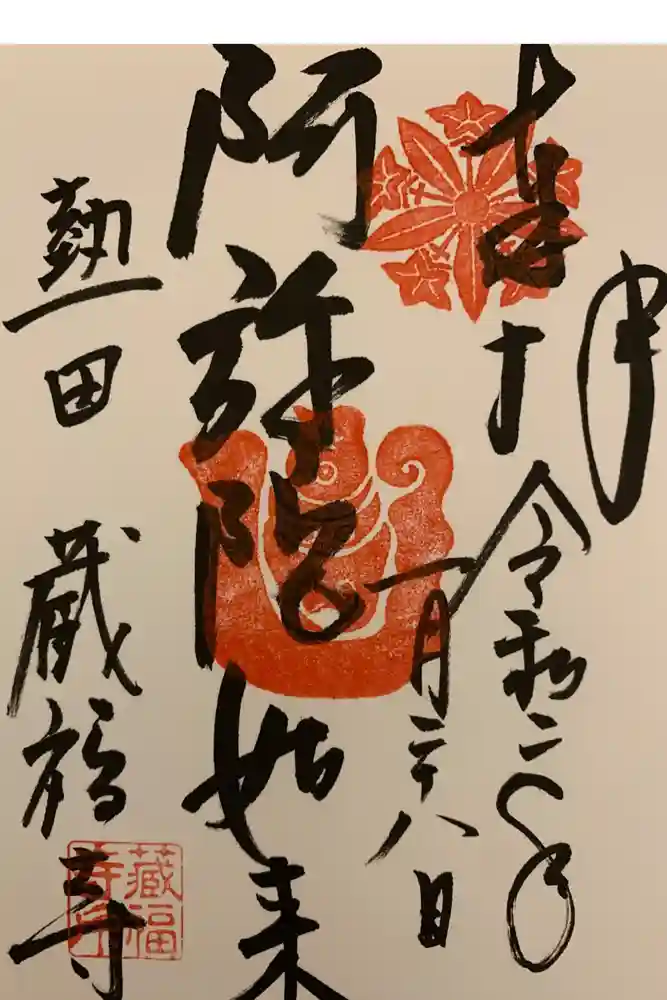 奉拝
令和二年
一月二十八日
阿弥陀如来
熱田 蔵福寺
藏福
寺印